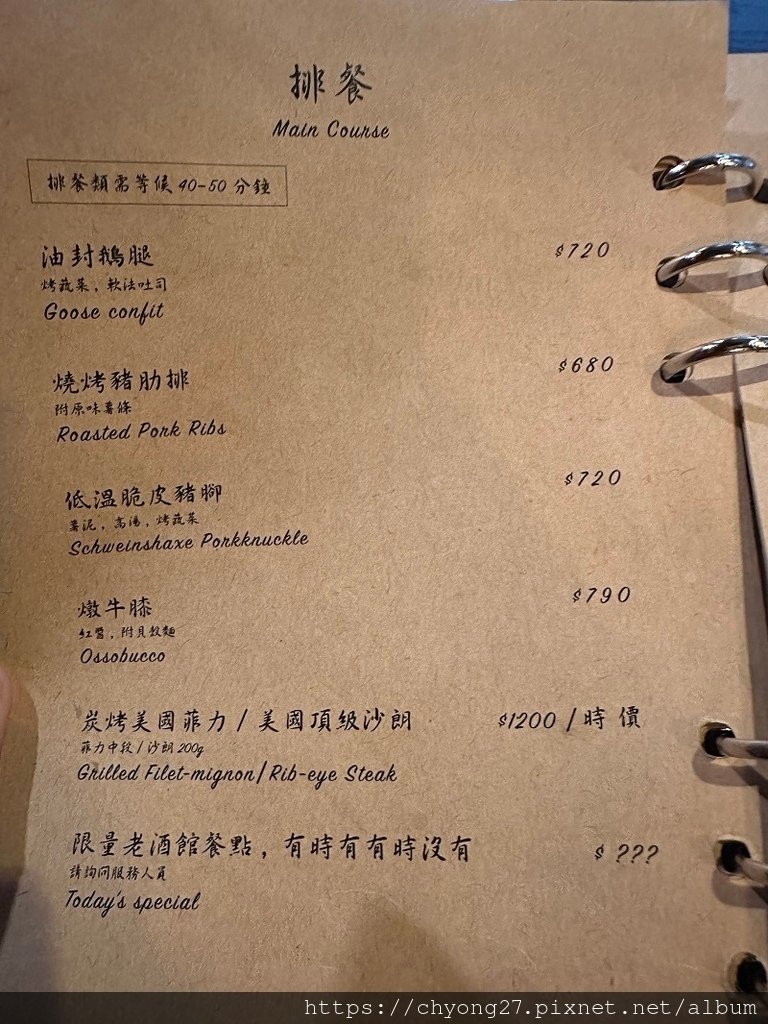 排餐
Main Course
排餐類需等候 40-50 分鐘
油封鵝腿 $720
烤蔬菜, 軟法吐司
Goose confit
燒烤豬肋排 $680
附原味薯條
Roasted Pork Ribs
低溫脆皮豬腳 $720
薯泥, 高湯, 烤蔬菜
Schweinshaxe Porkknuckle
燉牛膝 $790
紅醬, 附貝殼麵
Ossobucco
炭烤美國菲力 / 美國頂級沙朗 $1200 / 時價
菲力中段 / 沙朗 200g
Grilled Filet-mignon/Rib-eye Steak
限量老酒館餐點, 有時有有時沒有 $ ???
請詢問服務人員
Today's special
https://chyong27.pixnet.net/album